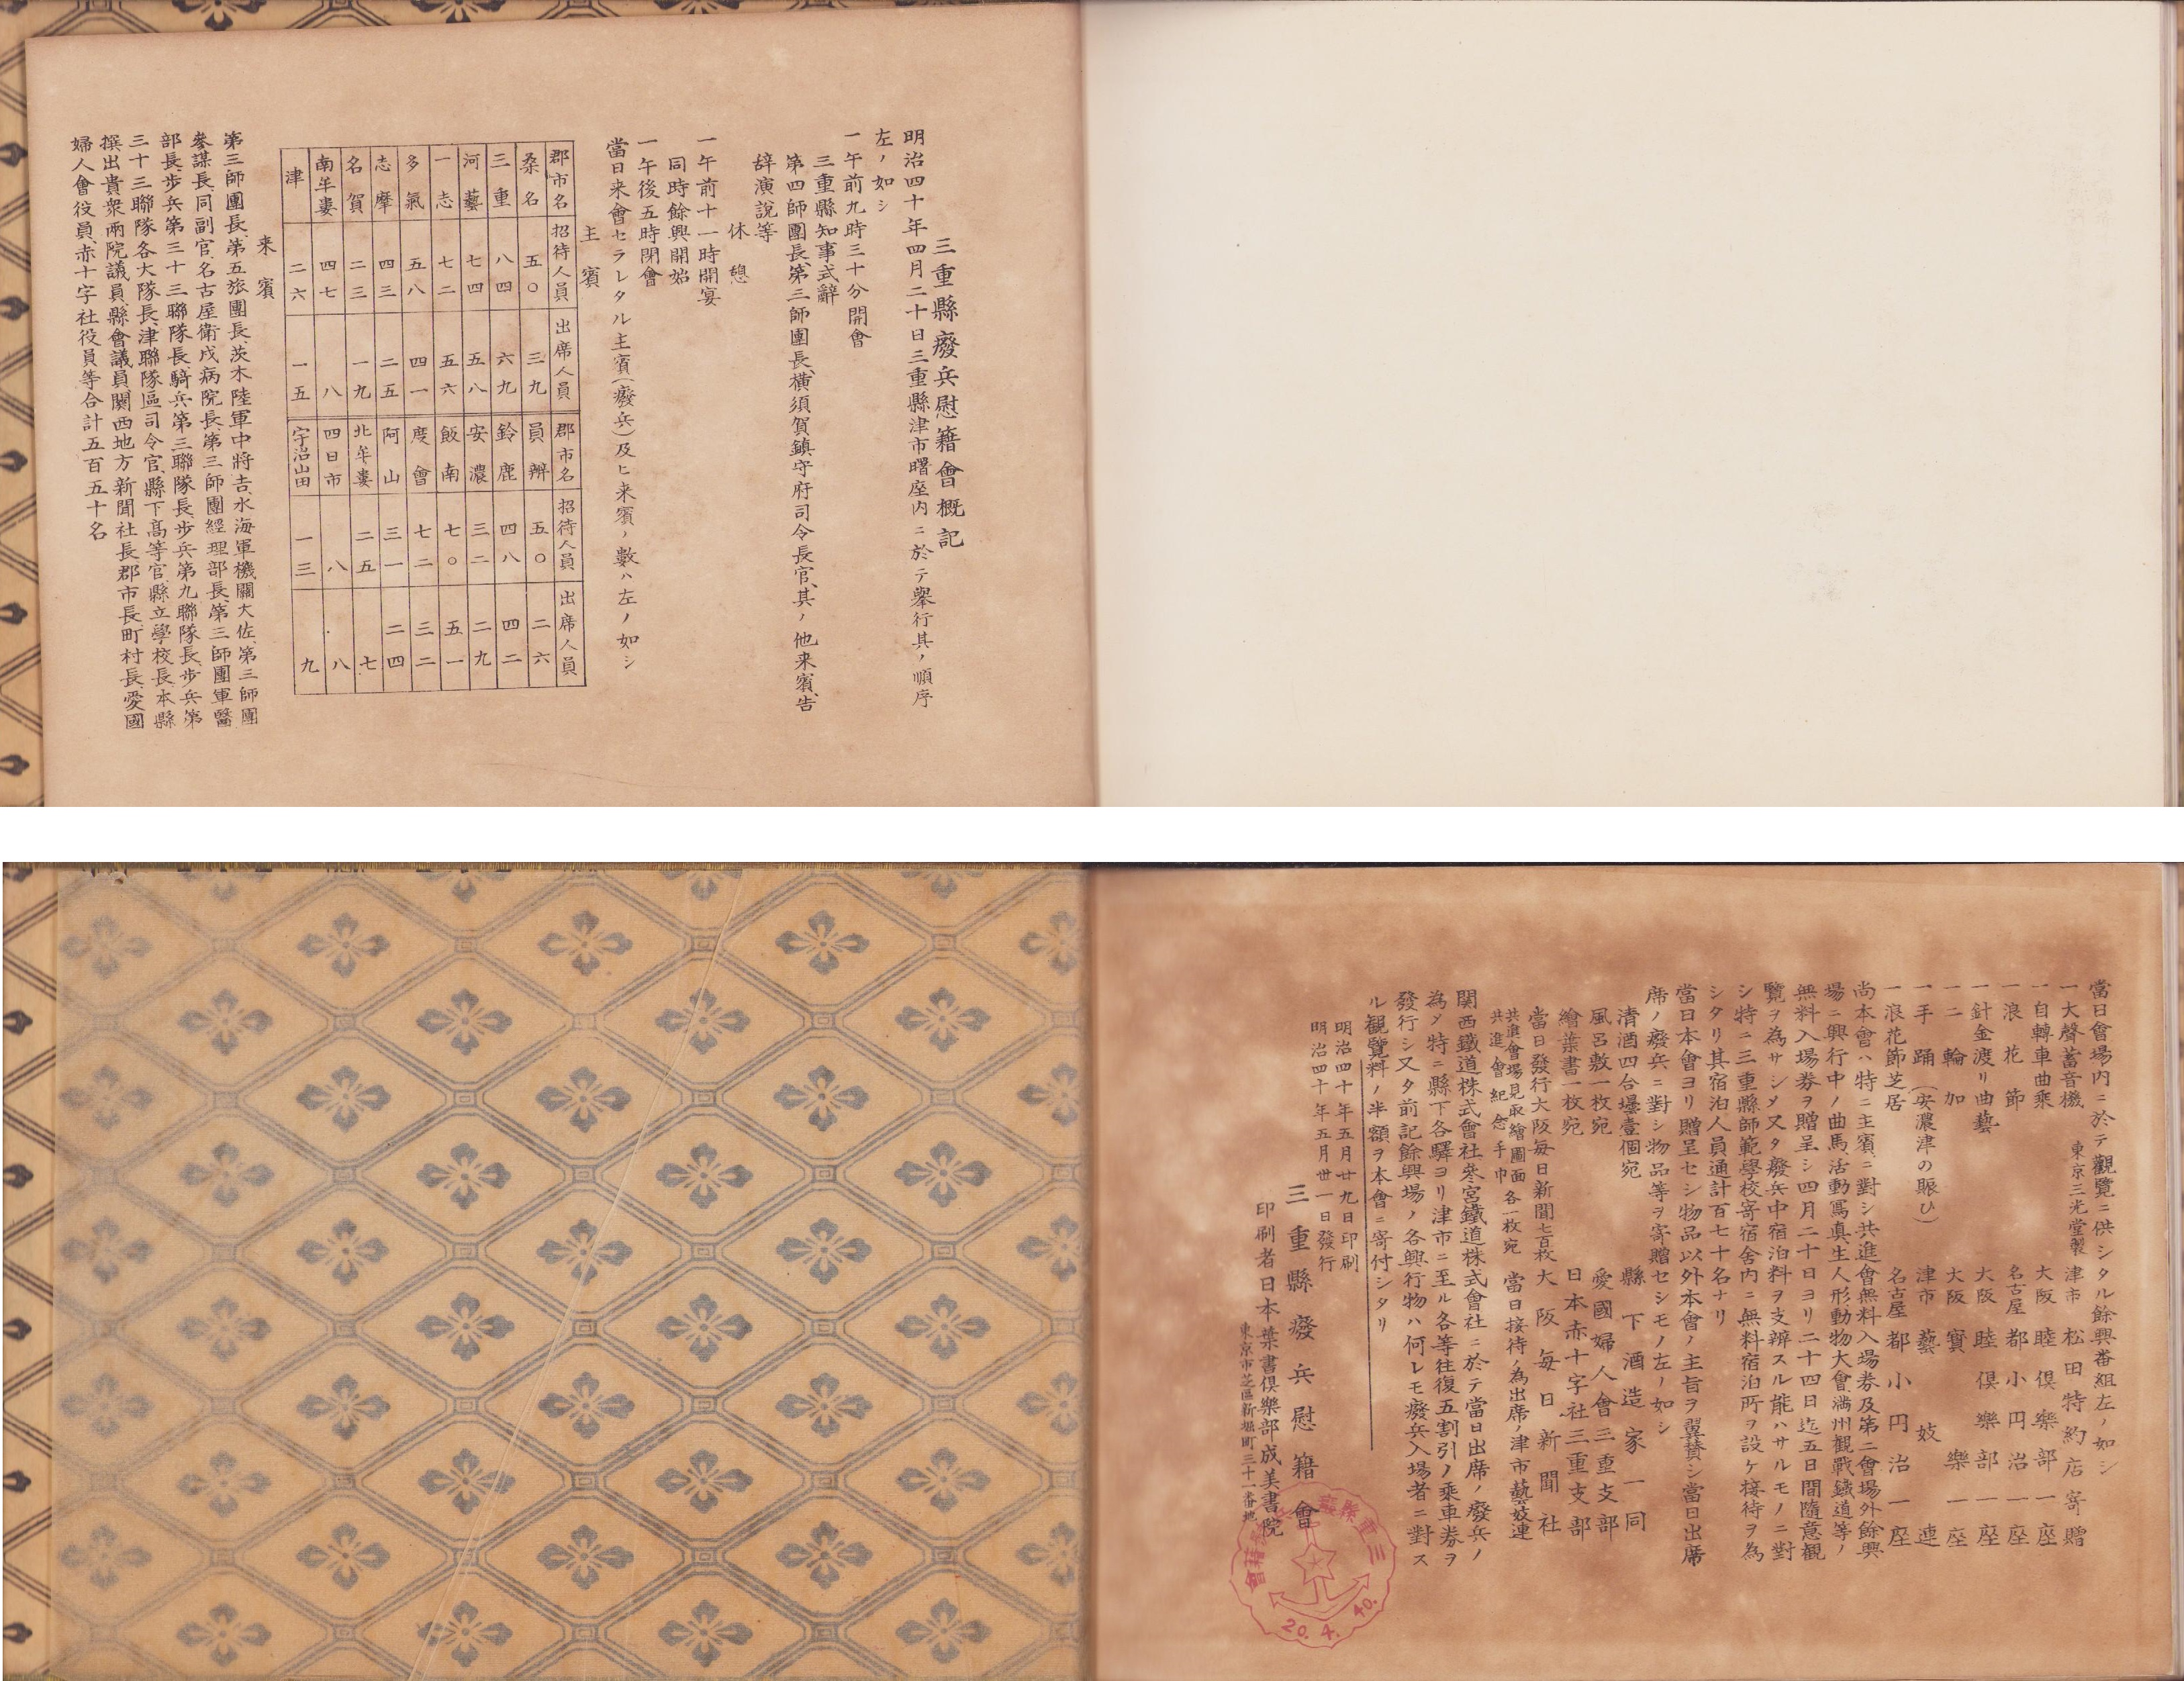 三重縣廢兵慰藉會概記
明治四十年四月二十日三重縣津市曙座内ニ於テ擧行其ノ順序
左ノ如シ
一午前九時三十分開會
三重縣知事式辭
第四師團長、第三師團長、横須賀鎮守府司令長官、其ノ他来賓告
辞演説等
休憩
一午前十一時開宴
同時餘興開始
一午後五時閉會
當日来會セラレタル主賓(廢兵)及ヒ来賓ノ數ハ左ノ如シ
主賓
郡市名 招待人員 出席人員 郡市名 招待人員 出席人員
桑名 五〇 三九 員辨 五〇 二六
三重 八四 六九 鈴鹿 四八 四二
河藝 七四 五八 安濃 三二 二九
一志 七二 五六 飯南 七〇 五一
多氣 五八 四一 度會 七二 三二
志摩 四三 二五 阿山 三一 二四
名賀 二三 一九 北牟婁 二五 七
南牟婁 四七 八 四日市 八 八
津 二六 一五 宇治山田 一三 九
来賓
第三師團長、第五旅團長、茨木陸軍中將、吉水海軍機關大佐、第三師團
參謀長、同副官、名古屋衛戍病院長、第三師團經理部長、第三師團軍醫
部長、歩兵第三十三聯隊長、騎兵第三聯隊長、歩兵第九聯隊長、歩兵第
三十三聯隊各大隊長、津聯隊區司令官、縣下高等官、縣立學校長、本縣
撰出貴衆兩院議員、縣會議員、関西地方新聞社長、郡市長、町村長、愛國
婦人會役員、赤十字社役員等合計五百五十名
當日會場内ニ於テ觀覽ニ供シタル餘興番組左ノ如シ
一大聲蓄音機 東京三光堂製 津市 松田特約店寄贈
一自轉車曲乘 大阪 睦俱樂部一座
一浪花節 名古屋 都小円治一座
一針金渡リ曲藝 大阪 睦俱樂部一座
一二輪加 大阪 寳樂一座
一手踊(安濃津の賑ひ) 津市 藝妓連
一浪花節芝居 名古屋 都小円治一座
尚本會ハ特ニ主賓ニ對シ共進會無料入場券及第二會場外餘興
場ニ興行中ノ曲馬活動寫真、生人形動物大會、満州観戰鐵道等ノ
無料入場券ヲ贈呈シ四月二十日ヨリ二十四日迄五日間隨意観
覽ヲ為サシメ又タ廢兵中宿泊料ヲ支辨スル能ハサルモノニ對
シ特ニ三重縣師範學校寄宿舍内ニ無料宿泊所ヲ設ケ接待ヲ為
シタリ其宿泊人員通計百七十名ナリ
當日本會ヨリ贈呈セシ物品以外本會ノ主旨ヲ翼賛シ當日出席
席ノ廢兵ニ對シ物品等ヲ寄贈セシモノ左ノ如シ
清酒四合壜壹個宛 縣下酒造家一同
風呂敷一枚宛 愛國婦人會三重支部
繪葉書一枚宛 日本赤十字社三重支部
當日發行大阪毎日新聞七百枚 大阪毎日新聞社
共進會場見取繪圖面
共進會紀念手巾 各一枚宛 當日接待ノ為出席ノ津市藝妓連
関西鐵道株式會社參宮鐵道株式會社ニ於テ當日出席ノ廢兵ノ
為メ特ニ縣下各驛ヨリ津市ニ至ル各等往復五割引ノ乘車券ヲ
發行シ又タ前記餘興場ノ各興行物ハ何レモ廢兵入場者ニ對ス
ル観覽料ノ半額ヲ本會ニ寄付シタリ
明治四十年五月廿九日印刷
明治四十年五月卅一日發行
三重縣廢兵慰藉會
印刷者日本葉書俱樂部成美書院
東京市芝區新堀町三十一番地
20. 4. 40.